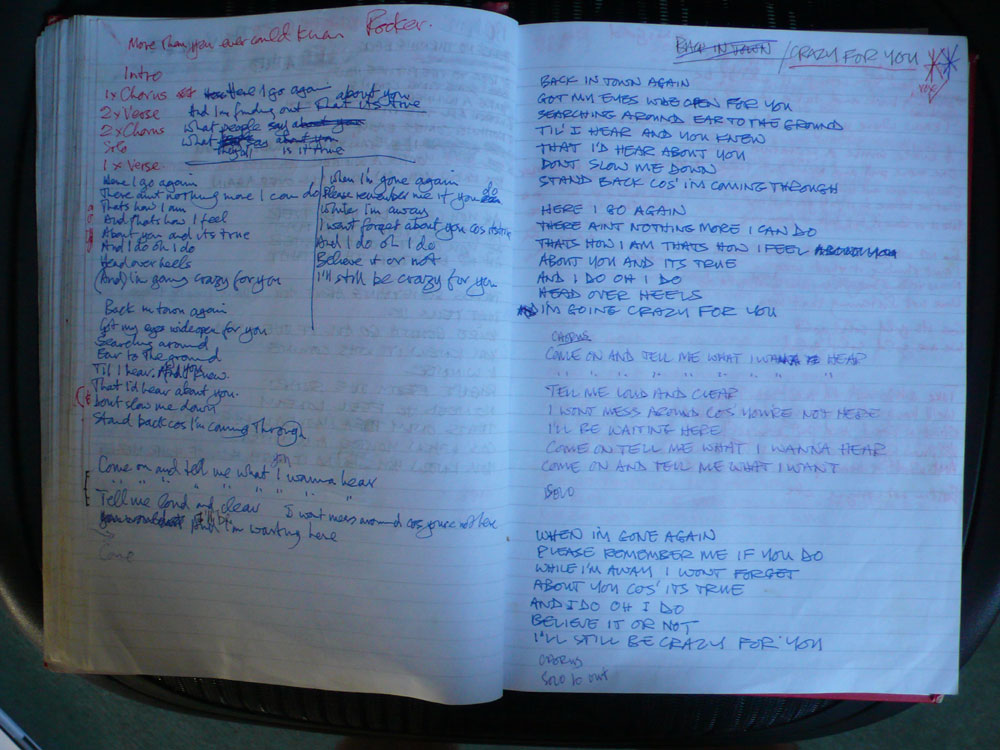 More than you ever could know Rocker.
Intro
1 x Chorus Here I go again about you
2 x Verse And I'm finding out that it's true
2 x Chorus what people say about you
Solo what say about you
they all is it true
1 x Verse
Here I go again
There aint nothing more I can do
Thats how I am
And thats how I feel
About you and its true
And I do oh I do
Head over heels
(And) im going crazy for you
When I'm gone again
Please remember me if you do
While I'm away
I wont forget about you cos its true
And I do oh I do
Believe it or not
I'll still be crazy for you
Back in town again
Got my eyes wide open for you
Searching around
Ear to the ground
Til I hear And you knew
That I'd hear about you.
Dont slow me down
Stand back cos I'm coming through
Come on and tell me what I wanna hear
" " " " " " " "
Tell me loud and clear I wont mess around cos youre not here
I'm waiting here
Come
BACK IN TOWN / CRAZY FOR YOU
BACK IN TOWN AGAIN
GOT MY EYES WIDE OPEN FOR YOU
SEARCHING AROUND EAR TO THE GROUND
TIL' I HEAR AND YOU KNEW
THAT I'D HEAR ABOUT YOU
DONT SLOW ME DOWN
STAND BACK COS' I'M COMING THROUGH
HERE I GO AGAIN
THERE AINT NOTHING MORE I CAN DO
THATS HOW I AM THATS HOW I FEEL ABOUT YOU
ABOUT YOU AND ITS TRUE
AND I DO OH I DO
HEAD OVER HEELS
AND I'M GOING CRAZY FOR YOU
CHORUS
COME ON AND TELL ME WHAT I WANNA HEAR
" " " " " " "
TELL ME LOUD AND CLEAR
I WONT MESS AROUND COS' YOU'RE NOT HERE
I'LL BE WAITING HERE
COME ON TELL ME WHAT I WANNA HEAR
COME ON AND TELL ME WHAT I WANT
SOLO
WHEN I'M GONE AGAIN
PLEASE REMEMBER ME IF YOU DO
WHILE I'M AWAY I WONT FORGET
ABOUT YOU COS' IT'S TRUE
AND I DO OH I DO
BELIEVE IT OR NOT
I'LL STILL BE CRAZY FOR YOU
CHORUS
SOLO TO OUT